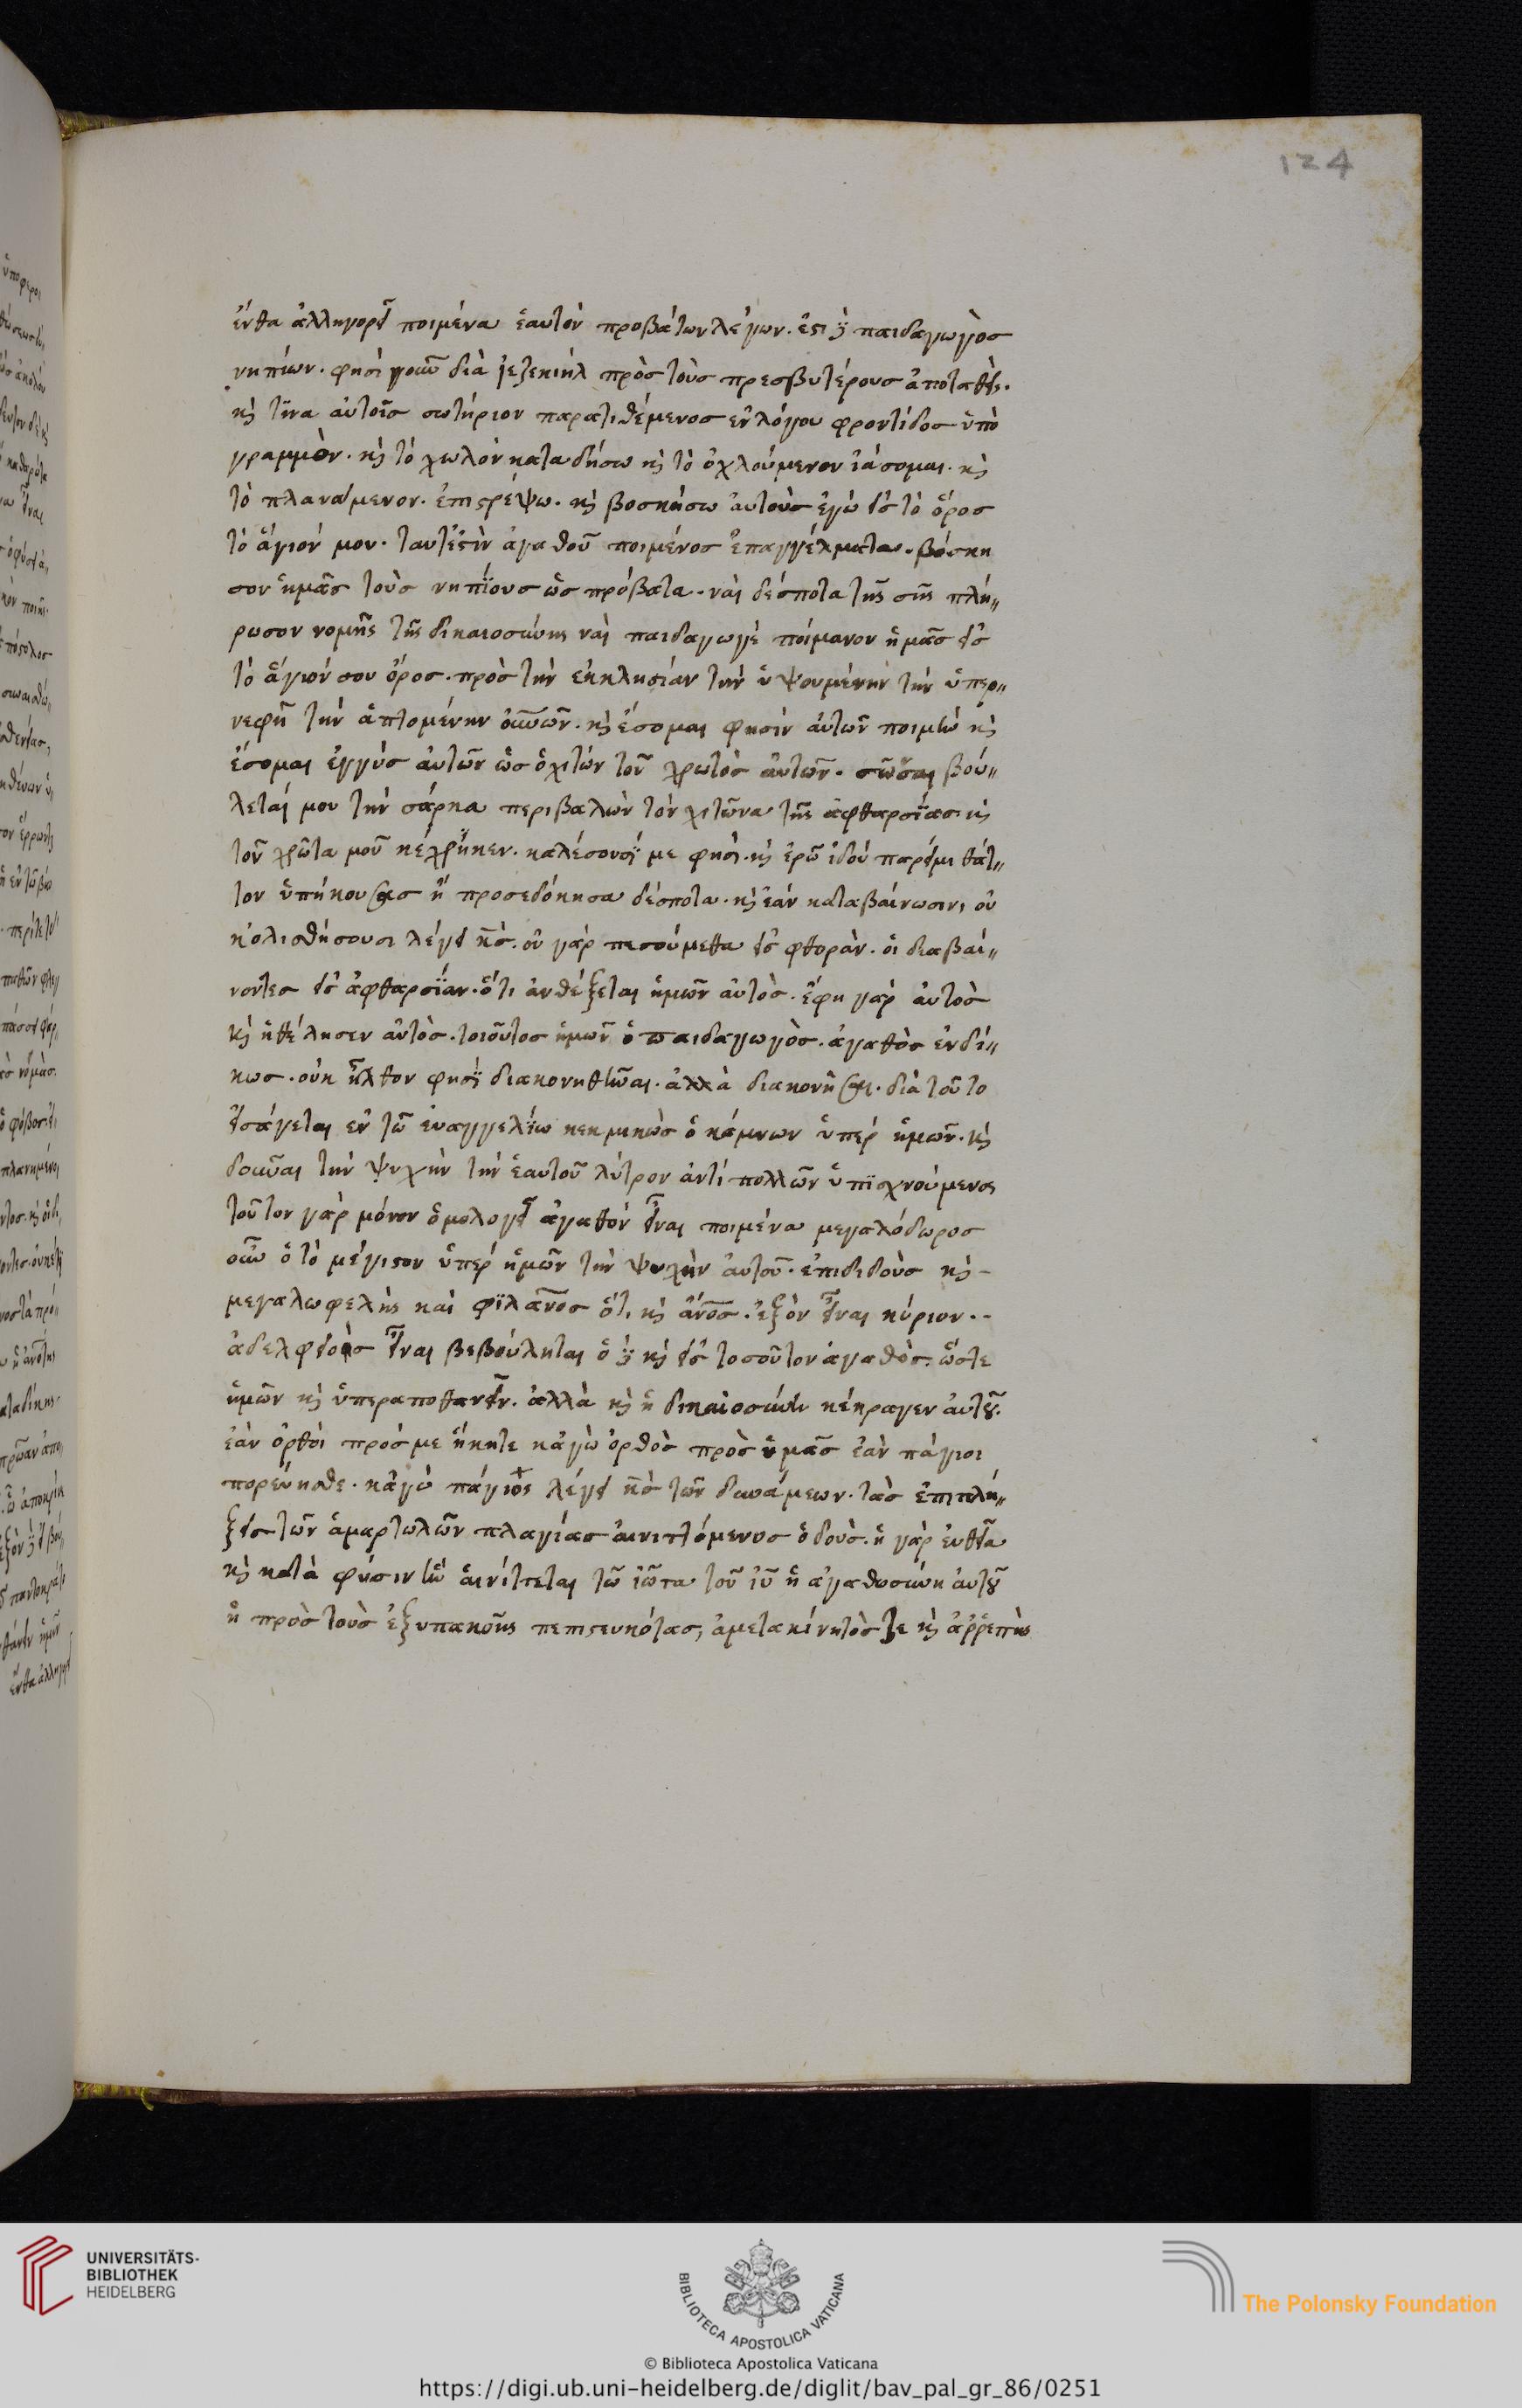 124
ἔνθα ἀλληγορεῖ ποιμένα ἑαυτὸν προβάτων λέγων. ἔστι δὲ παιδαγωγὸσ
νηπίων. φησὶ γοῦν διὰ ἰεζεκιὴλ πρὸσ τοὺσ πρεσβυτέρουσ ἀποταθεὶς.
κὶ τίνα αὐτοῖσ σωτήριον παρατιθέμενοσ εὐλόγου φροντίδοσ ὑπο
γραμμὸν. κὶ τὸ χωλὸν καταδήσω κὶ τὸ ὀχλούμενον ἰάσομαι. κὶ
τὸ πλανώμενον. ἐπιστρέψω. κὶ βοσκήσω αὐτοὺσ ἐγὼ εἰσ τὸ ὄροσ
τὸ ἅγιόν μου. ταυτέστὶν ἀγαθοῦ ποιμένοσ ἐπαγγέλματα. βόσκη
σον ἡμᾶσ τοὺσ νηπίουσ ὡσ πρόβατα. ναὶ δέσποτα τῆς σῆς πλή„
ρωσον νομῆς τῆς δικαιοσύνης ναὶ παιδαγωγὲ ποίμανον ἡμᾶσ εἰσ
τὸ ἅγιόν σου ὄροσ. πρὸσ τὴν ἐκκλησίαν τὴν ὑψουμένην τὴν ὑπερ„
νεφῆ τὴν ἁπτομένην οὐνῶν. κὶ ἔσομαι φησὶν αὐτῶν ποιμὴν κὶ
ἔσομαι ἐγγὺσ αὐτῶν ὡσ ὁ χιτὼν τοῦ χρωτὸσ αὐτῶν. σῶσαι βού„
λεταί μου τὴν σάρκα περιβαλὼν τὸν χιτῶνα τῆς ἀφθαρσίασ. κὶ
τοῦ χρῶτα μοῦ κέχρηκεν. καλέσουσί με φησὶ. κὶ ἐρῶ ἰδοὺ πάρειμι θᾶτ„
τον ὑπήκουσασ ἢ προσεδόκησα δέσποτα. κὶ ἐὰν καταβαίνωσιν, οὐ
κ'ὀλισθήσουσι λέγει κσ. οὐ γὰρ πεσούμεθα εἰσ φθορὰν. οἱ διαβαί„
νοντεσ εἰσ ἀφθαρσίαν. ὅτι ἀνθέξεται ἡμῶν αὐτὸσ. ἔφη γὰρ αὐτὸσ
κὶ ἠθέλησεν αὐτὸσ. τοιοῦτοσ ἡμῶν ὁ παιδαγωγὸσ. ἀγαθὸσ ἐνδί„
κωσ. οὐκ ἦλθον φησὶ διακονηθῆναι. ἀλλὰ διακονῆσαι. διὰ τοῦτο
εἰσάγεται ἐν τῶ εὐαγγελίω κεκμηκὼσ ὁ κάμνων ὑπὲρ ἡμῶν. κὶ
δοῦναι τὴν ψυχὴν τὴν ἑαυτοῦ λύτρον ἀντὶ πολλῶν ὑπισχνούμενος
τοῦτον γὰρ μόνον ὁμολογεῖ ἀγαθὸν εἶναι ποιμένα μεγαλόδωροσ
οὖν ὁ τὸ μέγιστον ὑπὲρ ἡμῶν τὴν ψυχὴν αὐτοῦ. ἐπιδιδοὺσ κὶ –
μεγαλωφελὴς καὶ φιλανοσ ὅτι κὶ ἄνοσ. ἐξὸν εἶναι κύριον. -
ἀδελφεοὸσ εἶναι βεβούληται ὁ δὲ κὶ εἰσ τοσοῦτον ἀγαθὸσ. ὥστε
ἡμῶν κὶ ὑπεραποθανεῖν. ἀλλὰ κὶ ἡ δικαιοσύνη κέκραγεν αὐτοῦ.
ἐὰν ὀρθοὶ πρόσ με ἥκητε κἀγὼ ὀρθὸσ πρὸσ ὑμᾶσ ἐὰν πάγιοι
πορεύησθε. κἀγὼ πάγιος λέγει κσ τῶν δυνάμεων. τὰσ ἐπιπλή„
ξεισ τῶν ἁμαρτωλῶν πλαγίασ αἰνιττόμενοσ ὁδούσ. ἡ γὰρ εὐθεῖα
κὶ κατὰ φύσιν ἣν αἰνίττεται τῶ ἰῶτα τοῦ ἰῦ ἡ ἀγαθωσύνη αὐτοῦ
ἡ πρὸσ τοὺσ ἐξ υπακοῆς πεπιστευκότασ, ἀμετακίνητὸσ τε κὶ ἀρρεπὴσ
UNIVERSITÄTS-
BIBLIOTHEK
HEIDELBERG
BIBLIOTECA APOSTOLICA VATICANA
The Polonsky Foundation
© Biblioteca Apostolica Vaticana
https://digi.ub.uni-heidelberg.de/diglit/bav_pal_gr_86/0251